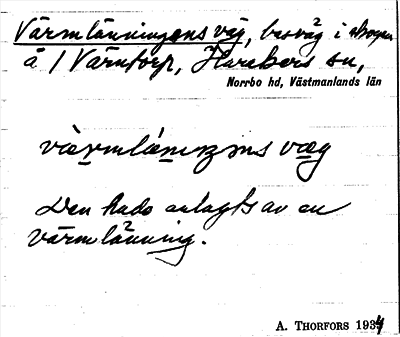 Värmlänningens väg, brovåg i skogen
å 1 Värntorp, Harakers sn,
Norrbo hd, Västmanlands län
væ̀rmlǽnıŋəns væg
Den hade anlagts av en
värmlänning.
A. THORFORS 1934